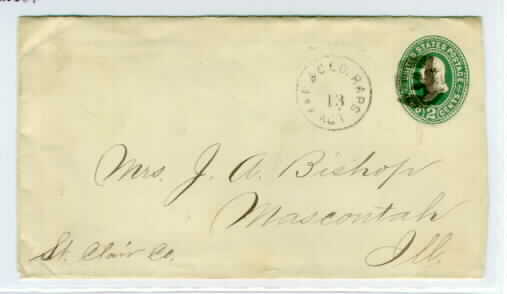 UNITED STATES POSTAGE
2 CENTS
& CED. RAPS.
13
Mrs. J. A. Bishop
Mascoutah
Ill.
St. Clair Co.